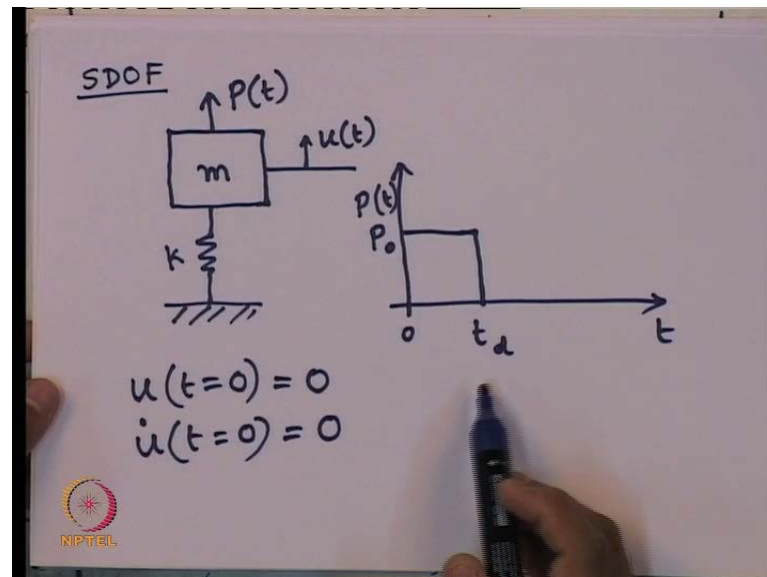 SDOF
P(t)
u(t)
m
k
P(t)
P₀
0
t_d
t
u(t=0) = 0
u̇(t=0) = 0
NPTEL